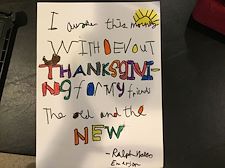 I awoke this morning
WITH DEVOUT
THANKSGIVI-
Ng for MY friends
The old and the
NEW
- Ralph Waldo
Emerson